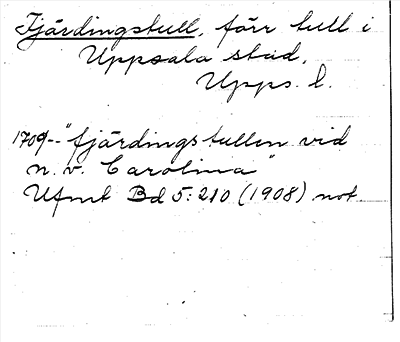 Fjärdingstull, förr tull i
Uppsala stad,
Upps. l.
1709-- "fjärdingstullen vid
n. v. Carolina"
Ufmt Bd 5: 210 (1908) not.